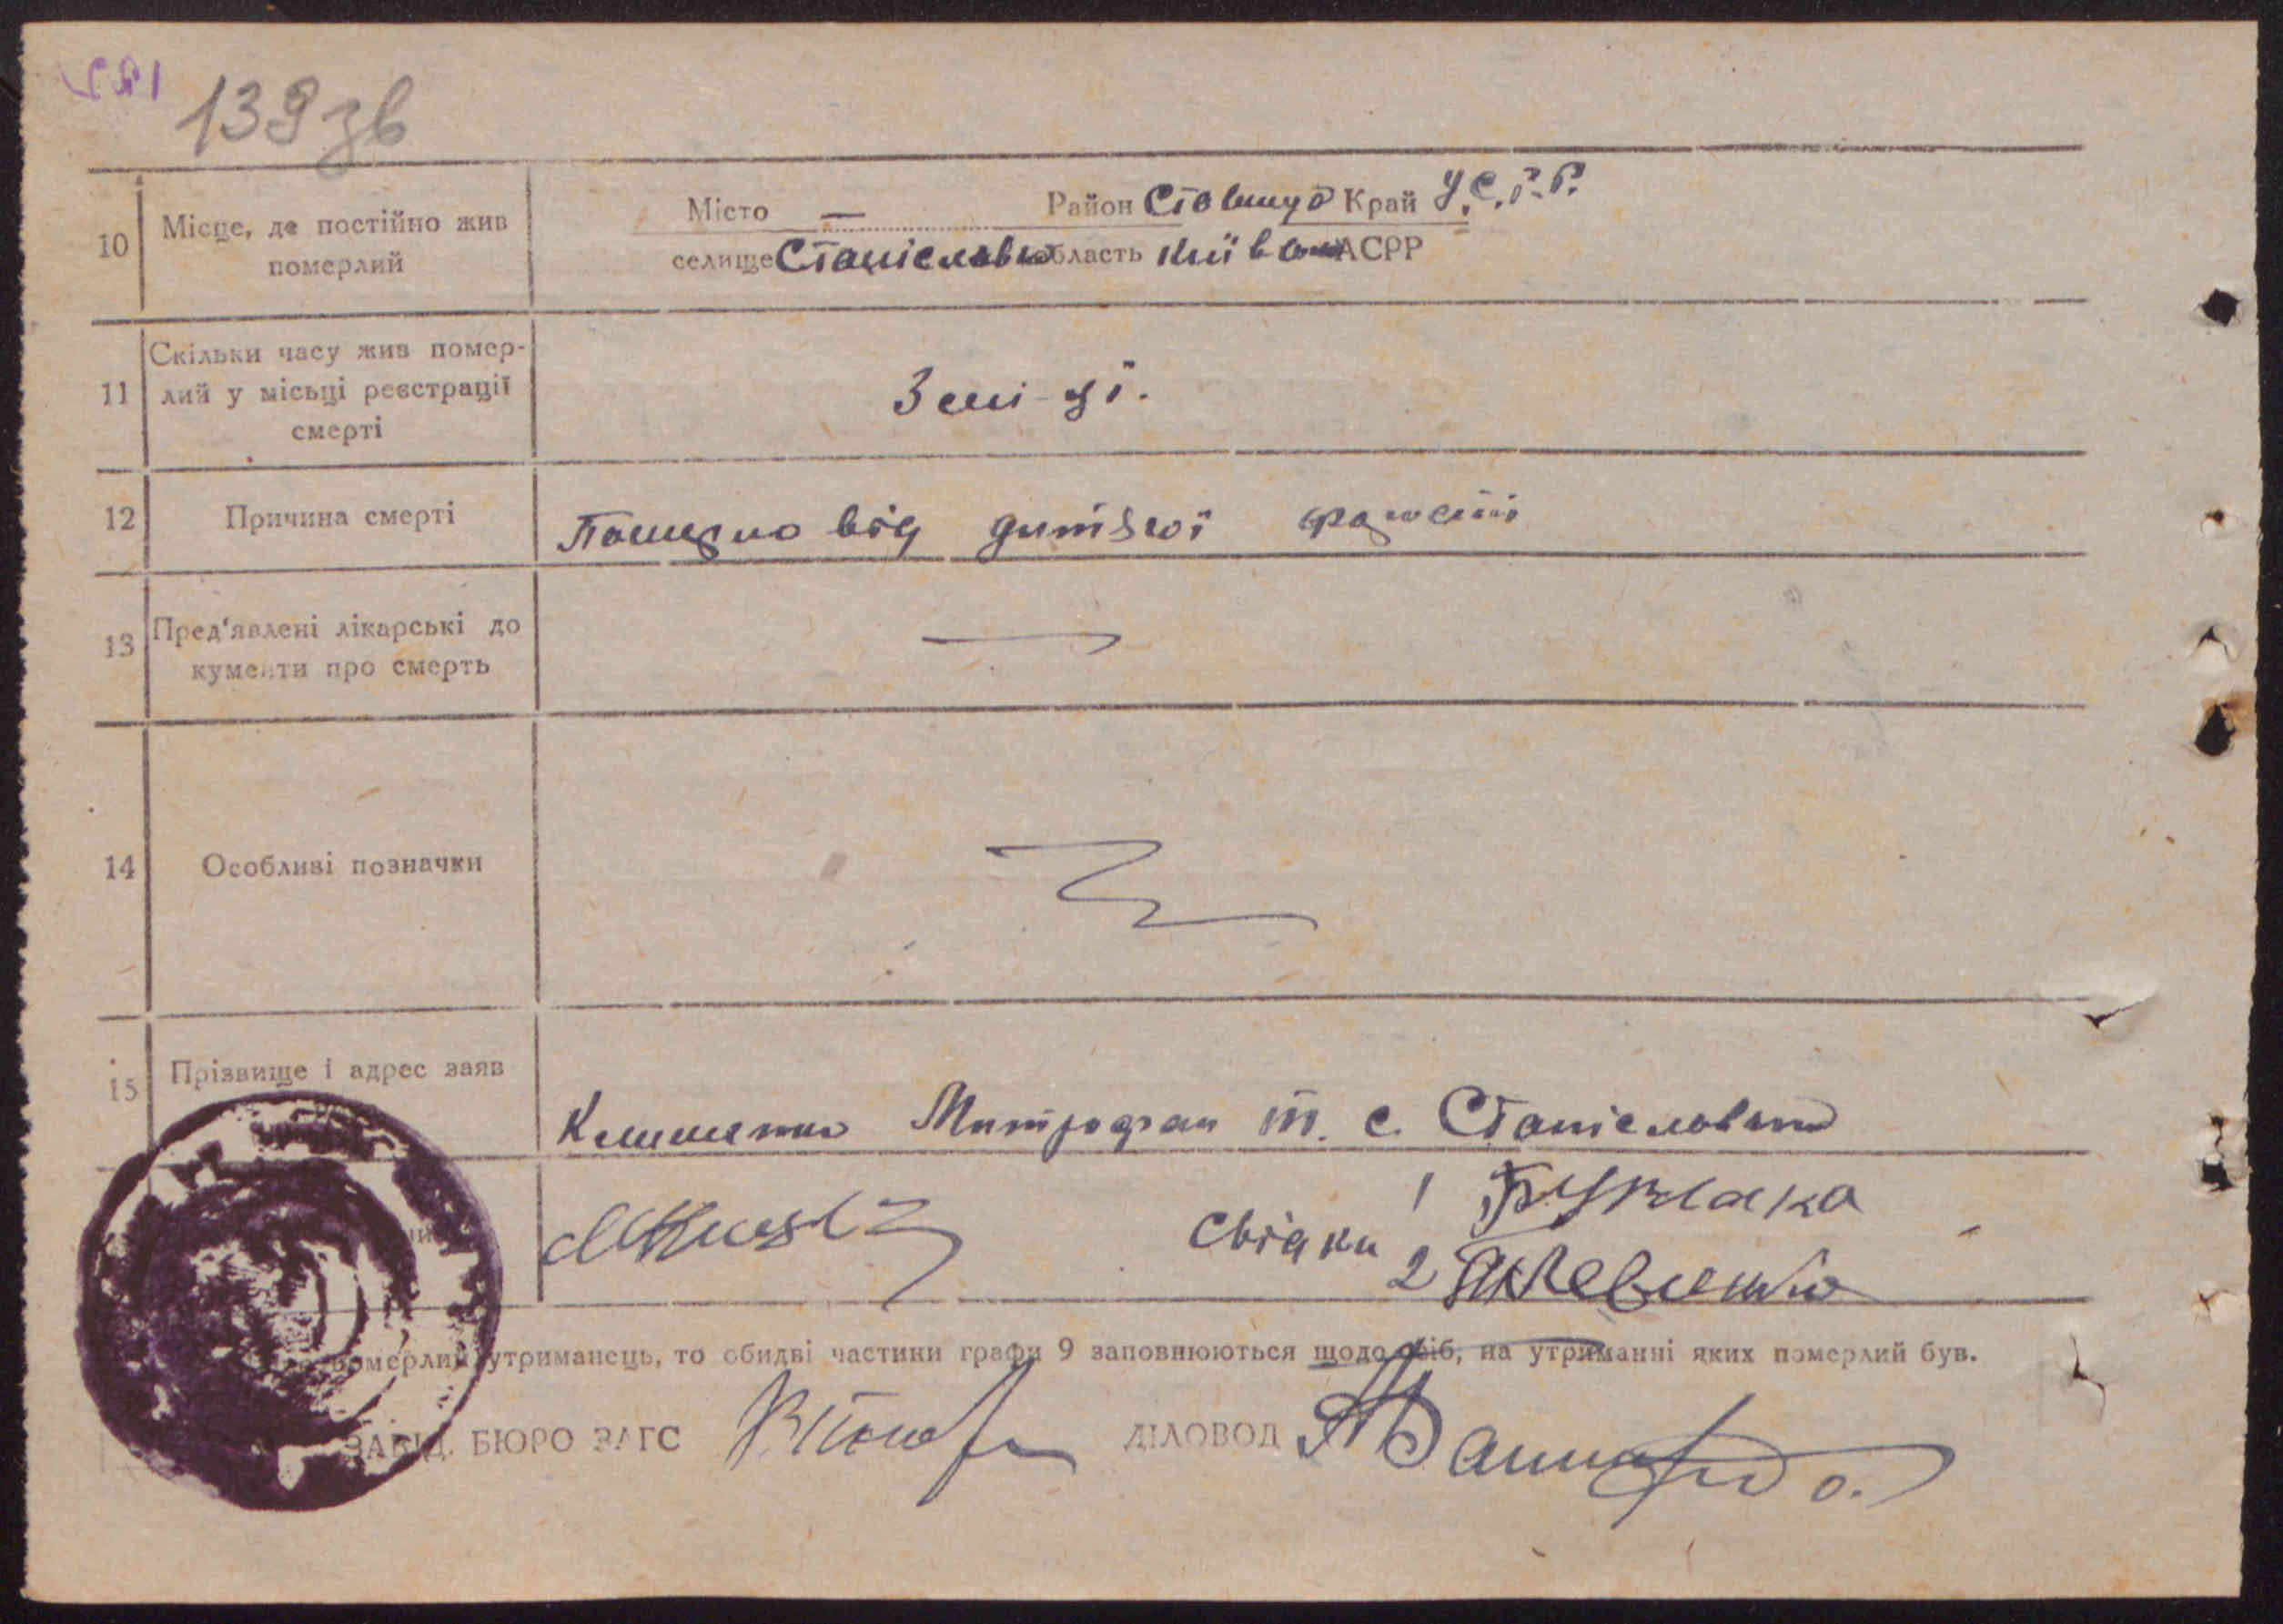 139 зв
10 Місце, де постійно жив померлий
Місто — Район Ставищ Край У.С.Р.Р.
селище Станіславка область Київськ АСРР
11 Скільки часу жив помер-
лий у місьці реєстрації
смерті
3 мі-ці.
12 Причина смерті
Померло від
13 Пред'явлені лікарські до
кументи про смерть
—
14 Особливі позначки
15 Прізвище і адрес заяв
Клименко Митрофан т. с. Станіславка
Свідки 1 Бурлака
2
померлий утриманець, то обидві частини графи 9 заповнюються щодо осіб, на утриманні яких померлий був.
ЗАВІД. БЮРО ЗАГС ДІЛОВОД